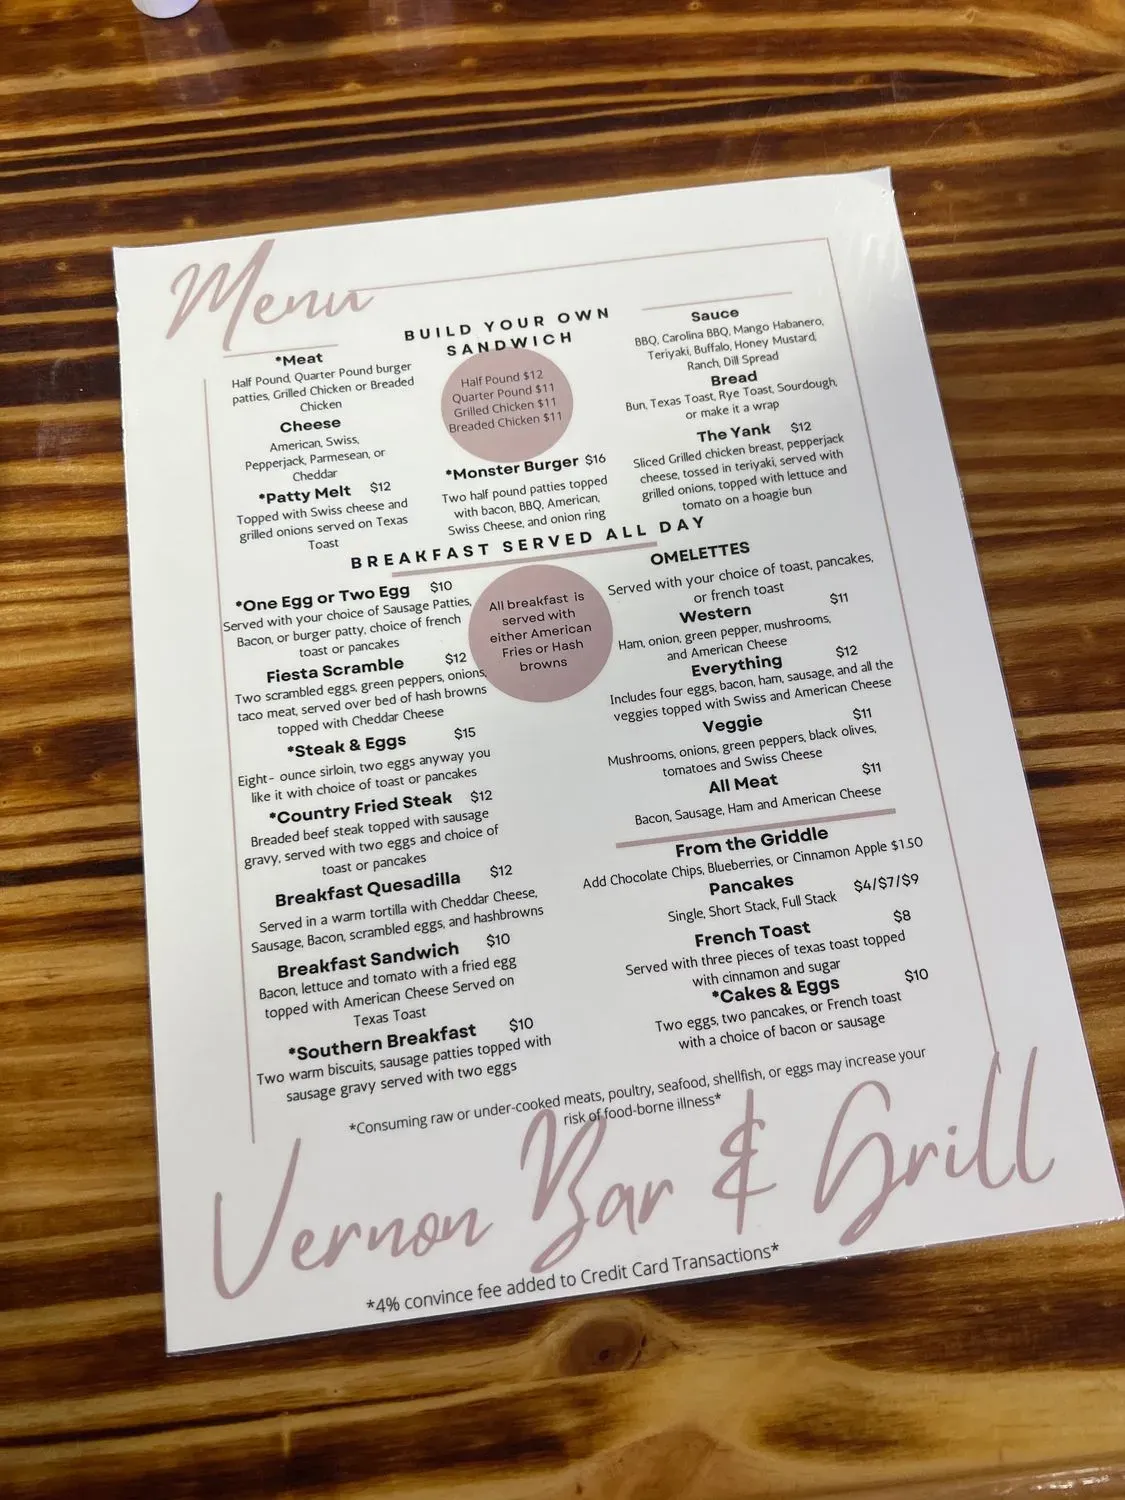 Menu
BUILD YOUR OWN
SANDWICH
*Meat
Half Pound, Quarter Pound burger
patties, Grilled Chicken or Breaded
Chicken
Cheese
American, Swiss,
Pepperjack, Parmesean, or
Cheddar
*Patty Melt $12
Topped with Swiss cheese and
grilled onions served on Texas
Toast
Half Pound $12
Quarter Pound $11
Grilled Chicken $11
Breaded Chicken $11
*Monster Burger $16
Two half pound patties topped
with bacon, BBQ, American,
Swiss Cheese, and onion ring
Sauce
BBQ, Carolina BBQ, Mango Habanero,
Teriyaki, Buffalo, Honey Mustard,
Ranch, Dill Spread
Bread
Bun, Texas Toast, Rye Toast, Sourdough,
or make it a wrap
The Yank $12
Sliced Grilled chicken breast, pepperjack
cheese, tossed in teriyaki, served with
grilled onions, topped with lettuce and
tomato on a hoagie bun
BREAKFAST SERVED ALL DAY
*One Egg or Two Egg $10
Served with your choice of Sausage Patties,
Bacon, or burger patty, choice of french
toast or pancakes
Fiesta Scramble $12
Two scrambled eggs, green peppers, onions,
taco meat, served over bed of hash browns
topped with Cheddar Cheese
*Steak & Eggs $15
Eight- ounce sirloin, two eggs anyway you
like it with choice of toast or pancakes
*Country Fried Steak $12
Breaded beef steak topped with sausage
gravy, served with two eggs and choice of
toast or pancakes
Breakfast Quesadilla $12
Served in a warm tortilla with Cheddar Cheese,
Sausage, Bacon, scrambled eggs, and hashbrowns
Breakfast Sandwich $10
Bacon, lettuce and tomato with a fried egg
topped with American Cheese Served on
Texas Toast
*Southern Breakfast $10
Two warm biscuits, sausage patties topped with
sausage gravy served with two eggs
All breakfast is
served with
either American
Fries or Hash
browns
OMELETTES
Served with your choice of toast, pancakes,
or french toast
Western $11
Ham, onion, green pepper, mushrooms,
and American Cheese
Everything $12
Includes four eggs, bacon, ham, sausage, and all the
veggies topped with Swiss and American Cheese
Veggie $11
Mushrooms, onions, green peppers, black olives,
tomatoes and Swiss Cheese
All Meat $11
Bacon, Sausage, Ham and American Cheese
From the Griddle
Add Chocolate Chips, Blueberries, or Cinnamon Apple $1.50
Pancakes $4/$7/$9
Single, Short Stack, Full Stack
French Toast $8
Served with three pieces of texas toast topped
with cinnamon and sugar
*Cakes & Eggs $10
Two eggs, two pancakes, or French toast
with a choice of bacon or sausage
*Consuming raw or under-cooked meats, poultry, seafood, shellfish, or eggs may increase your
risk of food-borne illness*
Vernon Bar & Grill
*4% convince fee added to Credit Card Transactions*